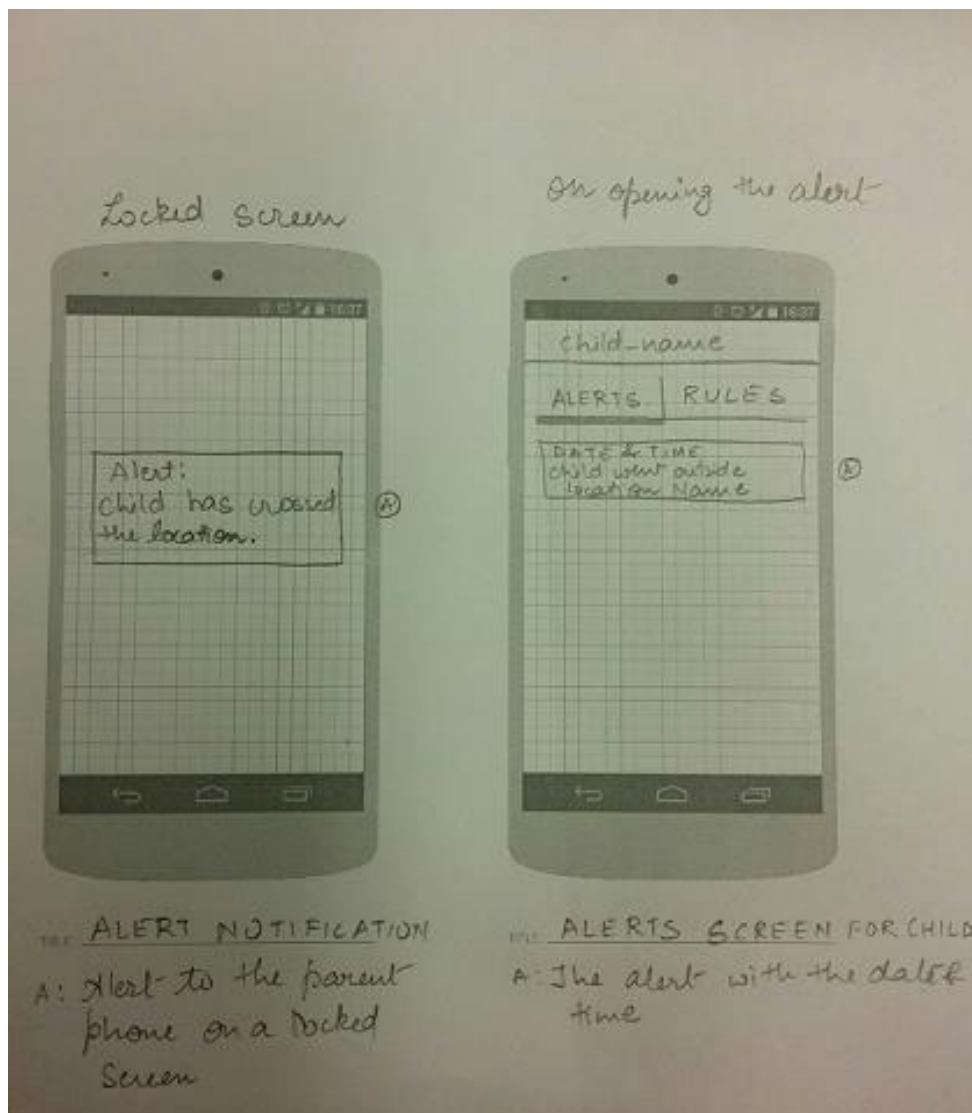 Locked screen
Alert:
child has crossed
the location.
A
16:37
TITLE ALERT NOTIFICATION
A: Alert to the parent
phone on a locked
Screen
On opening the alert
16:37
child_name
ALERTS RULES
DATE & TIME
child went outside
location Name
A
TITLE ALERTS SCREEN FOR CHILD
A: The alert with the date &
time